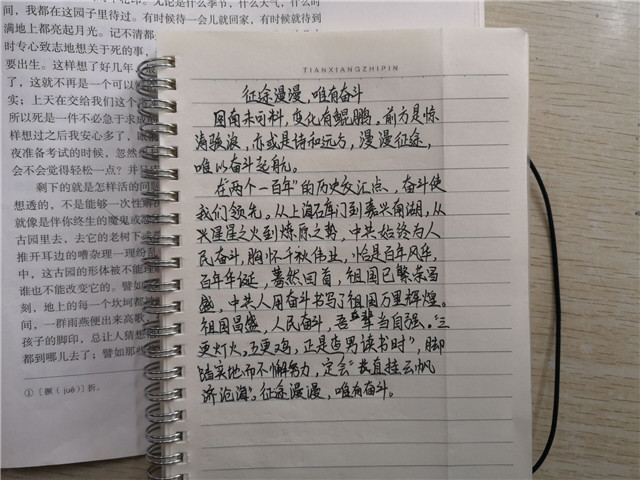 间，我都在这园子里待过。有时候待一会儿就回家，有时候就待到
满地上都亮起月光。记不清都
时专心致志地想关于死的事，
要出生。这样想了好几年，
了，这就不再是一个可以
实；上天在交给我们这个
所以死是一件不必急于求成
样想过之后我安心多了，眼
夜准备考试的时候，忽然
会不会觉得轻松一点？并且
剩下的就是怎样活的问题
想透的，不是能够一次性解
就像是伴你终生的魔鬼或
古园里去，去它的老树下或
推开耳边的嘈杂理一理纷乱
中，这古园的形体被不能理
谁也不能改变它的。譬如
刻，地上的每一个坎坷都
间，一群雨燕便出来高歌，
孩子的脚印，总让人猜想
都到哪儿去了；譬如那些
① 〔撅（juē）〕折。
TIANXIANGZHIPIN
征途漫漫，唯有奋斗
图南未可料，变化有鲲鹏，前方是惊
涛骇浪，亦或是诗和远方，漫漫征途，
唯以奋斗起航。
在“两个一百年”的历史交汇点，奋斗使
我们领先。从上海石库门到嘉兴南湖，从
兴星星之火到燎原之势，中共始终为人
民奋斗，胸怀千秋伟业，恰是百年风华，
百年华诞，蓦然回首，祖国已繁荣昌
盛，中共人用奋斗书写了祖国万里辉煌。
祖国昌盛，人民奋斗，吾辈当自强。“三
更灯火五更鸡，正是男读书时”，脚
踏实地而不懈努力，定会“长直挂云帆
济沧海”。征途漫漫，唯有奋斗。